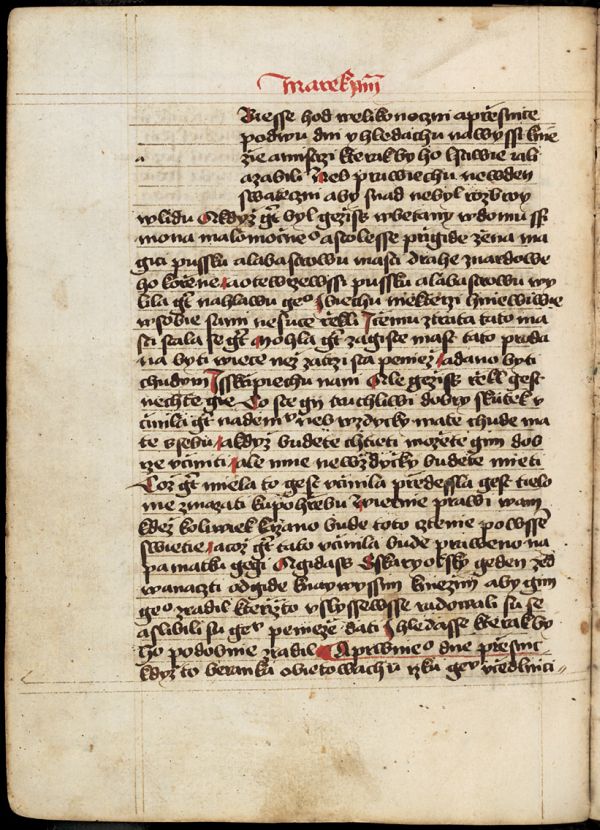 Marek xiiii
Biesse hod welikonoczni a přesnice
po dwu dní y hledachu naywyssi knie
zie a mistrzi kterak by ho lstiwie iali
a zabili Neb prawiechu ne w den
swateczni aby snad nebyl rozbroy
w lidu A když gt̄ byl gežiss w betany w domu ss̄
mona malomocneº a stolesse prigide žena ma
gici pussku alabastrowu masti drahe z nardowe
ho kořene a otewrzewssi pussku alabastrowu wy
lila gt̄ na hlawu geº I biechu niekteřzi hniewiwie
w sobie sami nesuce řkuci I čemu ztrata tato ma
sti stala se gt̄ Mohla gt̄ zagiste mast tato proda
na byti wiece než za třzi sta peniez a dano byti
chudym I sskřipiechu nani Ale gežiss řekl gest
nechte gie Co ste gij truchliwi dobry skutek v
činila gt̄ nademnu neb wždycky mate chude ma
te s sebu a když budete chtieti možete gim dob
rze včiniti ale mne ne wždycky budete mieti
Což gt̄ miela to gest včinila předessla gest tielo
me zmazati ku pohřebu wiernie prawi wam
kdež koliwiek kazano bude toto cztenie po wssē
swietie a což gt̄ tato včinila bude praweno na
pamatku gegi A gidass Sskaryotsky geden ze d
wanaczti odgide k naywyssim kniezim aby gim
geº zradil kteřižto vslyssewsse radowali su se
a slibili su geᵛ penieze dati I hledasse kterak by
ho podobnie zradil A prwnieº dne přesnic
když to beranka obietowachu řku geᵛ včedlnici